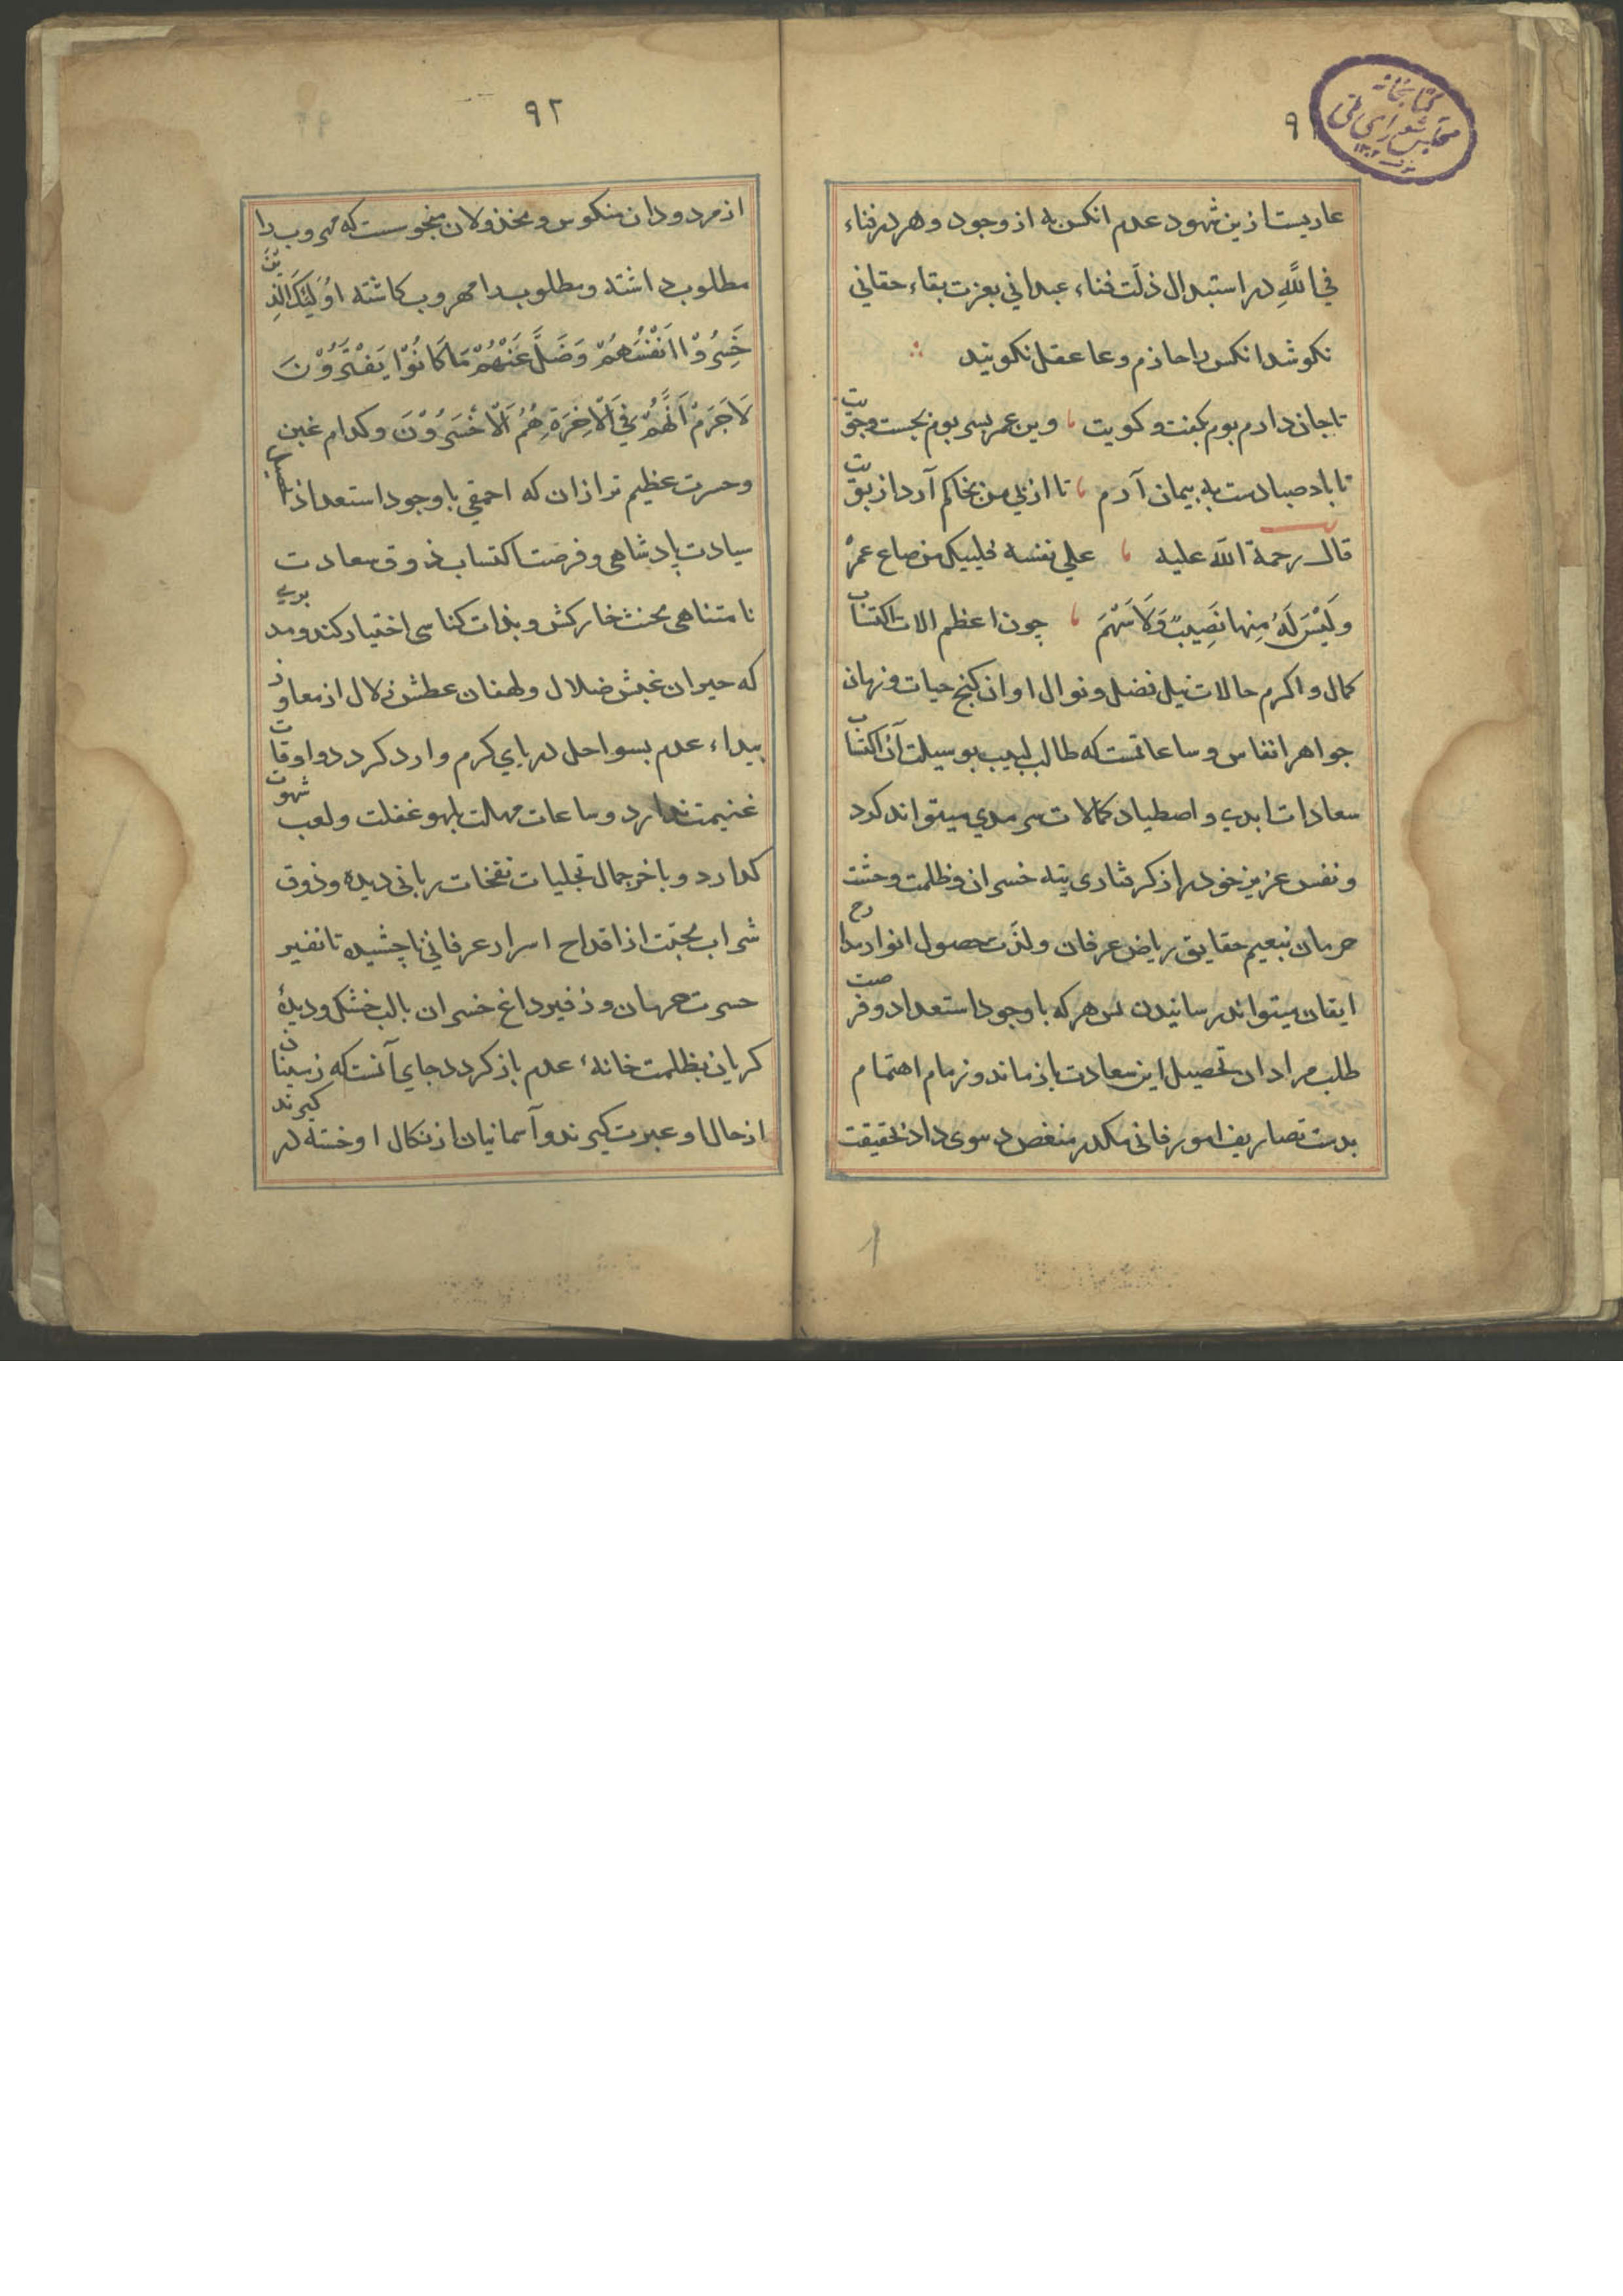 ۹۱
کتابخانه مجلس شورای ملی
عاریست ازین شهود عدم انکس به از وجود و هر در فناء
في اللّهِ در استبدال ذلّت فناء عبداني بعزت بقاء حقاني
نکوشد انکس را حازم و عاقل نکویند
تا جان دارم بوم بکفت و کویت وین عمر بسر بوم بجست و جویت
تا باد صبا دست به پیمان آرم تا از پی من بخاکم آرد از بویت
قال رحمة الله علیه علي نفسه فلیبک من ضاع عمره
وَلَیْسَ لَهُ مِنها نَصِیبٌ وَلَا سَهْمَ چون اعظم الات اکتساب
کمال و اکرم حالات نیل فضل و نوال اوان کنج حیات و زمان
جواهر انفاس و ساعاتست که طالب لبیب بوسیلت آن اکتساب
سعادات ابدي و اصطیاد کمالات سرمدي میتواند کرد
و نفس عزیز خود را از کرفتاری تیه خسران و ظلمت وحشت
حرمان بنعیم حقایق ریاض عرفان و لذّت حصول انوار مدارج
ایقان میتواند رسانیدن پس هر که با وجود استعداد و فرصت
طلب مراد از تحصیل این سعادت باز ماند و زمام اهتمام
بدست تصاریف امور فانی مکدر منغص دنیوی داد بحقیقت
۹۲
از مردودان منکوس و مخذولان منحوسست که مهروب را
مطلوب داشته و مطلوب را مهروب کاشته اُولٰئِکَ الَّذِینَ
خَسِرُوْا اَنْفُسَهُمْ وَضَلَّ عَنْهُمْ مَا کَانُوْا یَفْتَرُوْنَ
لَا جَرَمْ اَنَّهُمْ فِي الْاٰخِرَةِ هُمُ الْاَخْسَرُوْنَ و کدام غبن
و حسرت عظیم تر ازان که احمقي با وجود استعداد تحصیل
سیادت پادشاهی و فرصت اکتساب ذوق سعادت
نامتناهی محنت خارکشی و بذات کناسی اختیار کند و مدبري
که حیران عبش ضلال و لهفان عطش زلال از مفاوز
بیداء عدم بسواحل دریاي کرم وارد کردد و اوقات
غنیمت ندارد و ساعات مهلت بلهو غفلت و لعب شهوت
کذارد و باخر جمال تجلیات نفحات ربانی ندیده و ذوق
شراب محبّت از اقداح اسرار عرفاني ناچشیده تا نفیر
حسرت حرمان و زفیر داغ خسران با لب خشک و دیدهٔ
کریان بظلمت خانهٔ عدم باز کردد جاي آنست که زمینیان
از حال او عبرت کیرند و آسمانیان از نکال او خسته در کیرند